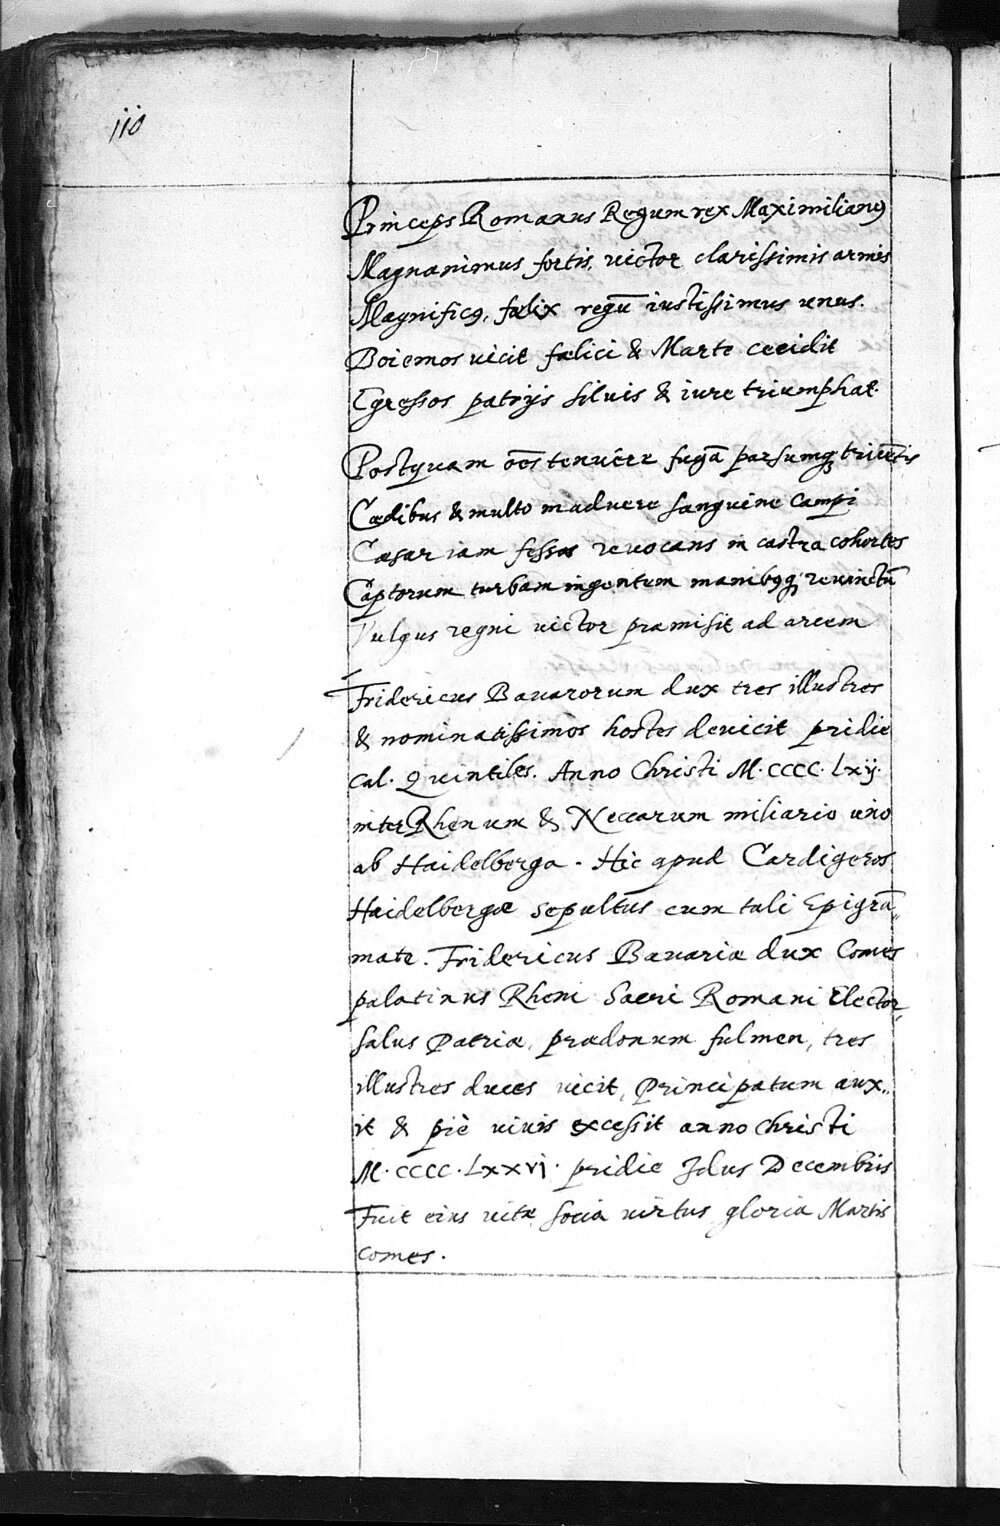 110
Princeps Romanus Regum rex Maximilianꝰ
Magnanimus fortis, victor clarissimis armis
Magnificꝰ, fœlix regū iustissimus unus.
Boiemos vicit fœlici & Marte cecidit
Egressos patrijs siluis & iure triumphat.
Postquam oēs tenuêre fugā parsumqꝫ tricētis
Cædibus & multo maduere sanguine campi
Cæsar iam fessas reuocans in castra cohortes
Captorum turbam ingentem manibꝰqꝫ reuinctū
Vulgus regni victor præmisit ad arcem
Fridericus Bauarorum dux tres illustres
& nominatissimos hostes deuicit pridie
Cal. Quintiles. Anno Christi M.CCCC.Lxij.
inter Rhenum & Neccarum miliario uno
ab Haidelberga. Hic apud Cardigeros
Haidelbergæ sepultus cum tali Epigrā„
mate. Fridericus Bauariæ dux Comes
palatinus Rheni Sacri Romani Elector,
salus Patriæ, prædonum fulmen, tres
illustres duces vicit, Principatum aux„
it & piè viuis excessit anno Christi
M.CCCC.Lxxvj. pridie Idus Decembris
Fuit eius vitæ socia virtus gloria Martis
comes.